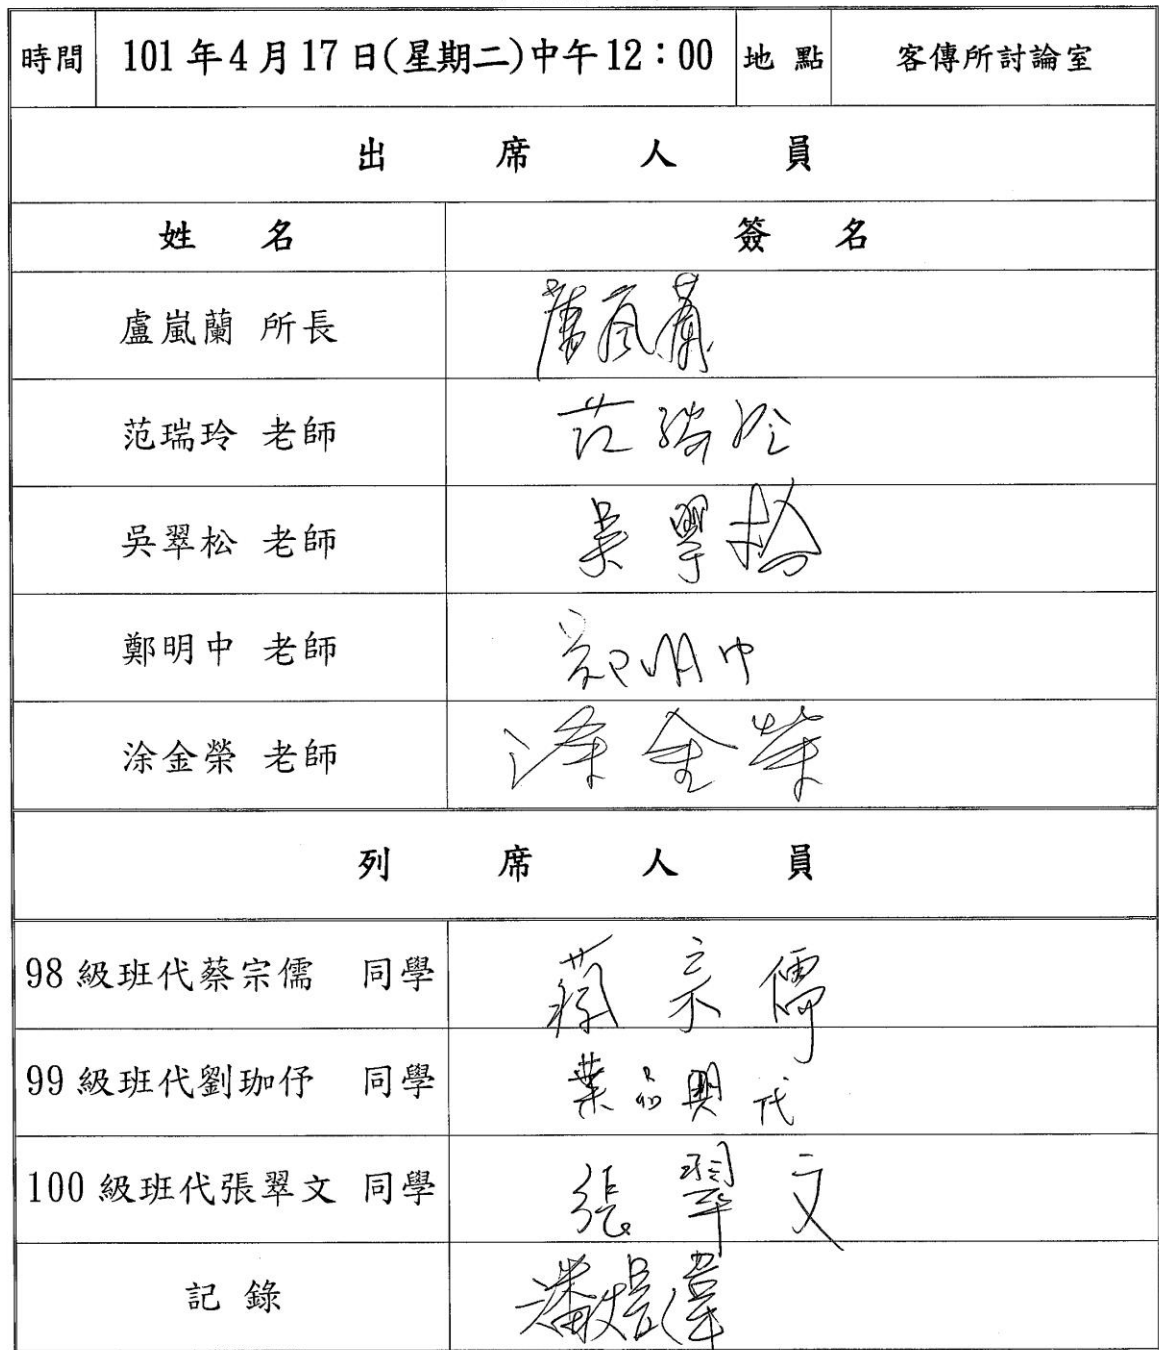 時間 101年4月17日(星期二)中午12:00 地點 客傳所討論室
出席人員
姓名 簽名
盧嵐蘭 所長 盧嵐蘭
范瑞玲 老師 范瑞玲
吳翠松 老師 吳翠松
鄭明中 老師 鄭明中
涂金榮 老師 涂金榮
列席人員
98級班代蔡宗儒 同學 蔡宗儒
99級班代劉珈伃 同學 葉品興代
100級班代張翠文 同學 張翠文
記錄 潘